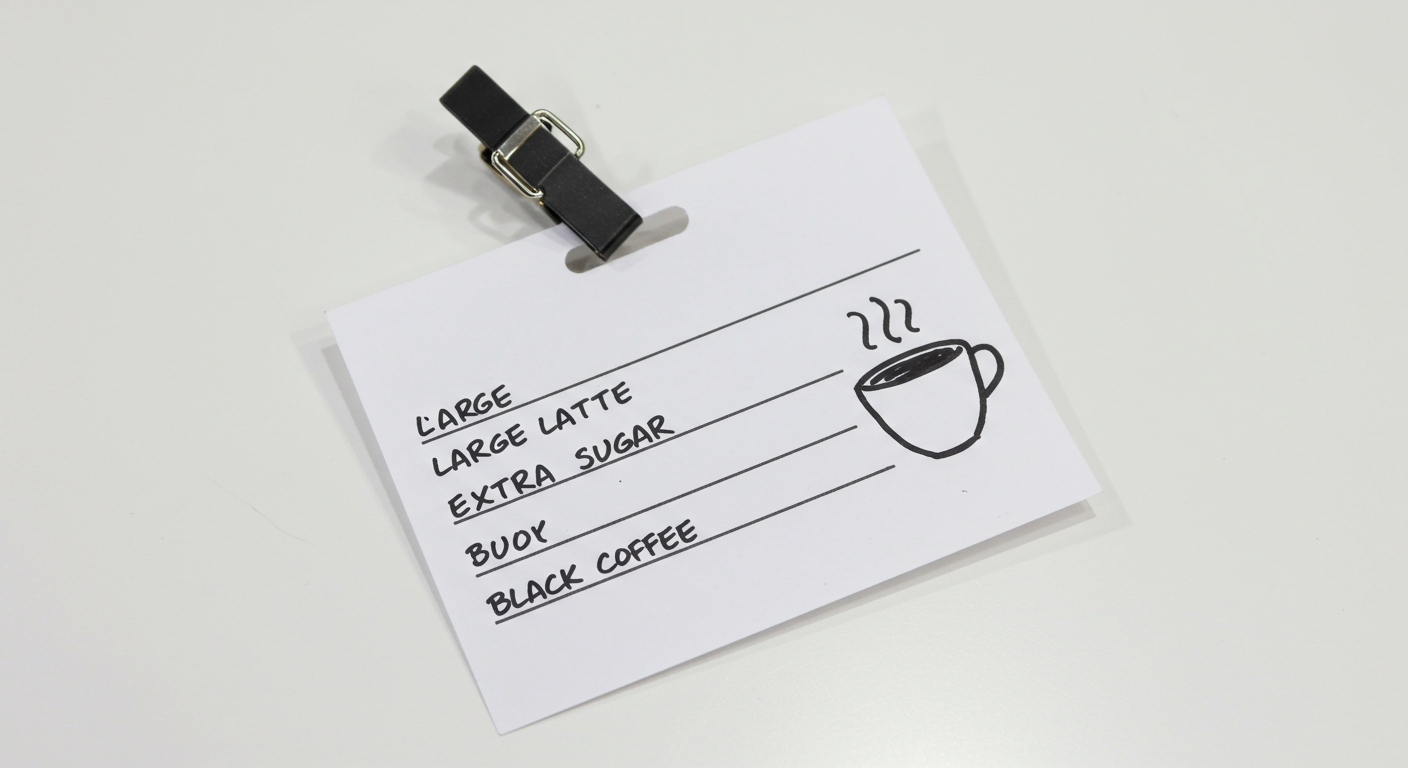 LARGE
LARGE LATTE
EXTRA SUGAR
BUOY
BLACK COFFEE